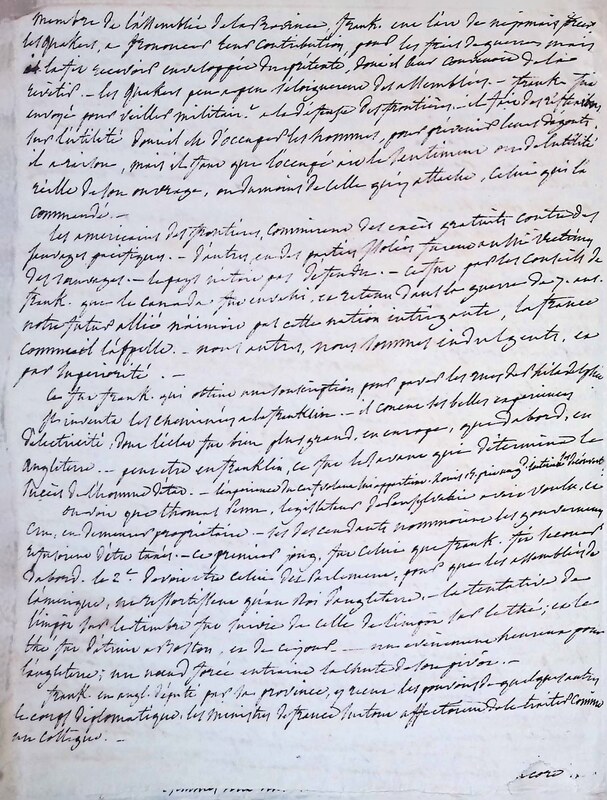 membre de l'assemblée de la Province, frank. eut l'air de ne jamais
les quakers, a prononcer leur contribution, pour les frais de guerre mais
à la fin
revêtir. — les quakers peu a peu s'éloignerent des assemblées. — frank. fut
envoyé pour veiller militair.t a la défense des frontières. — il fait des réflexions,
sur l'utilité dont il est d'occuper les hommes, pour prévenir leurs dégouts,
il a raison, mais il faut que l'occupé ait le sentiment ou de l'utilité
réelle de son ouvrage, ou du moins de celle qu'y attache, celui qui l'a
commandé. —
les américains des frontières, commirent des excès gratuits contre des
sauvages pacifiques. — d'autres, en des parties isolées furent aussi victimes
des sauvages. — le pays n'étoit pas défendu. — ce fut par les conseils de
frank. que le Canada, fut envahi, et retenu dans la guerre de 7. ans.
notre futur allié n'aimoit pas cette nation intrigante, la france
comme il l'appelle. — nous autres, nous sommes indulgents, et
par supériorité. —
Ce fut frank. qui obtint une souscription pour paver les rues de philadelphie
il invente les cheminées a la franklin. — il connut ses belles expériences
d'électricité; dont l'éclat fut bien plus grand, en europe, que d'abord, en
angleterre. — peut etre en franklin, ce fut le savant que détermine le
succès de l'homme d'état. —
on voit que thomas Penn, législateur de Pensylvanie avoit voulu, et
cru, en demeurer propriétaire. — ses descendants nommoient les gouverneurs
d'être taxés. — ce premier joug, fut celui que frank. fit secouer
d'abord. le 2.e devoit etre celui du Parlement, pour que les assemblées de
l'amérique, ne ressortissent qu'au Roi d'angleterre. — la tentative de
l'impot sur le timbre fut suivie de celle de l'impot sur le thé; et le
thé fut détruit a Boston, et de ce jour — un évènement heureux pour
l'angleterre; un noeud forcé entraine la chute de son pivot. —
frank. en angl. député par sa province, y reçut les pouvoirs de quelques autres
le corps diplomatique, les ministres de france surtout affectoient de le traiter comme
un collègue. —